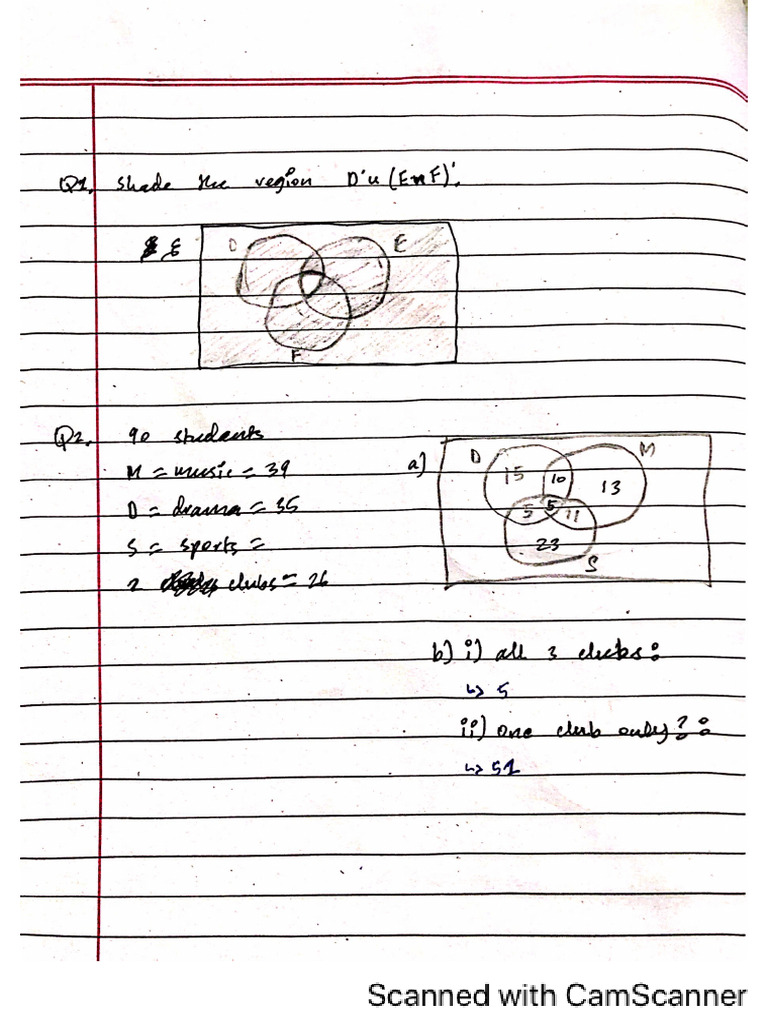 Q1. Shade the region D'u(EnF)'.
ξ
D
E
F
Q2. 90 students
M = music = 39
D = drama = 35
S = sports =
2 clubs = 26
a)
D
M
15
10
13
5
5
11
23
S
b) i) all 3 clubs:
↳ 5
ii) one club only? :
↳ 51
Scanned with CamScanner